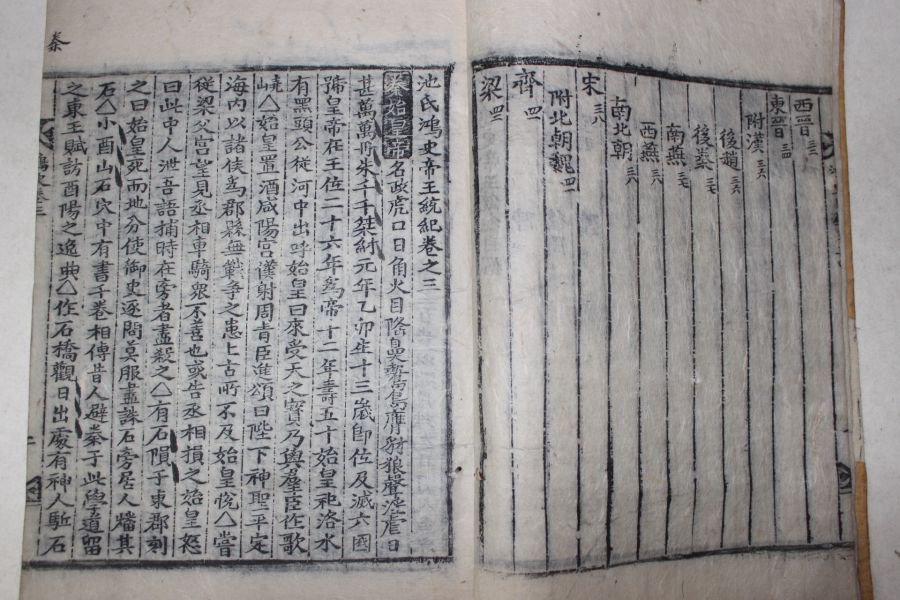 西晉 三三
東晉 三四
附漢 三六
後趙 三六
後燕 三七
南燕 三七
西燕 三八
南北朝
宋 三八
附北朝魏 四一
齊 四一
梁 四三
池氏鴻史帝王統紀卷之三
秦始皇帝 名政虎口日角火目隆鼻鷙鳥膺豺狼聲 虐日
甚萬萬丹朱千千桀紂元年乙卯生十三歲卽位及滅六國
號皇帝在王位二十六年爲帝十二年壽五十始皇祀洛水
有黑頭公從河中出呼始皇曰來受天之寶乃與羣臣作歌
△始皇置酒咸陽宮僕射周靑臣進頌曰陛下神聖平定
海內以諸侯爲郡縣無戰爭之患上古所不及始皇悅△嘗
從梁父宮望見丞相車騎衆不善也或告丞相損之始皇怒
曰此中人泄吾語捕時在旁者盡殺之△有石隕于東郡刻
之曰始皇死而地分使御史逐問莫服盡誅石旁居人燔其
石△小酉山石穴中有書千卷相傳昔人避秦于此學道留
之東王賦訪酉陽之逸典△作石橋觀日出處有神人駈石
秦